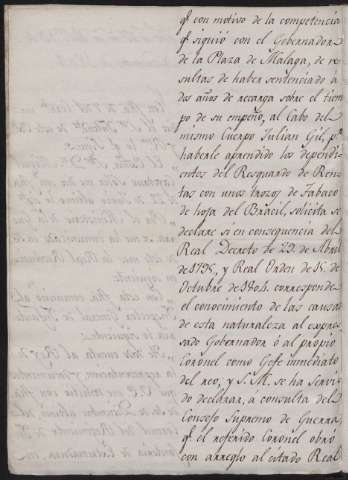 qᵉ con motivo de la competencia
qᵉ siguió con el Gobernador
de la Plaza de Malaga, de re-
sultas de haber sentenciado a
dos años de recarga sobre el tiem-
po de su empeño, al Cabo del
mismo Cuerpo Julian Gil, pʳ
haberle aprendido los dependi-
entes del Resguardo de Ren-
tas con unos trozos de Tabaco
de hoja del Bracil, solicita se
declare si en consequencia del
Real Decreto de 29 de Abril
de 1795, y Real Orden de
Octubre de 1804. corresponde
el conocimiento de las causas
de esta naturaleza al expre-
sado Gobernador ó al propio
Coronel como Gefe inmediato
del reo, y S. M. se ha servi-
do declarar, a consulta del
Consejo Supremo de Guerra,
qᵉ el referido Coronel obró
con arreglo al citado Real